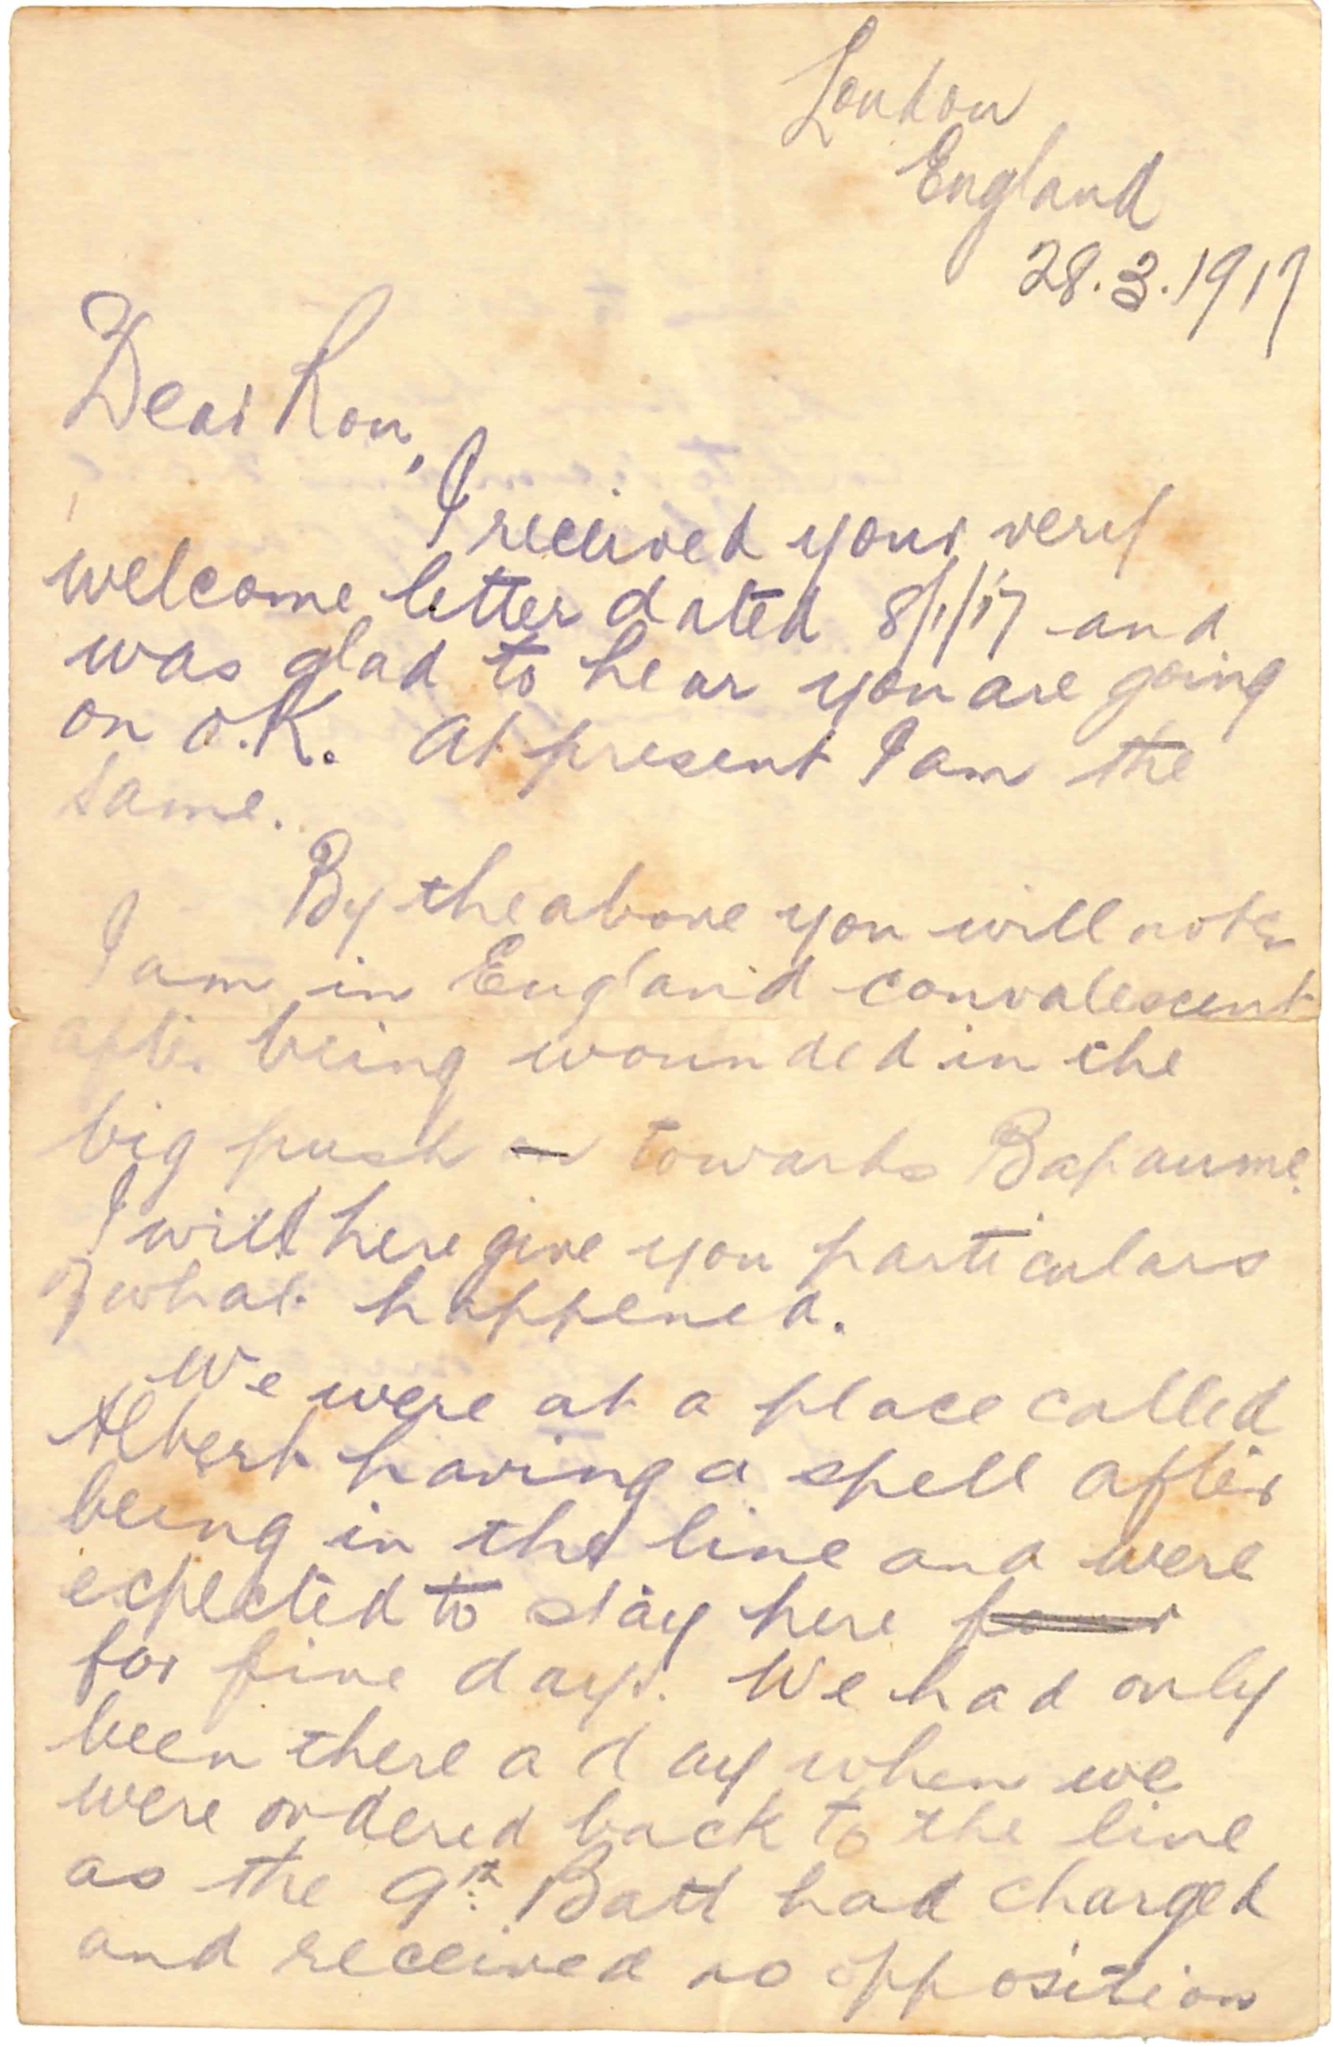 London
England
28.3.1917
Dear Ron,
I received your very
welcome letter dated 8/1/17 and
was glad to hear you are going
on O.K. At present I am the
same.
By the above you will note
I am in England convalescent
after being wounded in the
big push towards Bapaume.
I will here give you particulars
of what happened.
We were at a place called
Albert having a spell after
being in the line and were
expected to stay here four
for five days. We had only
been there a day when we
were ordered back to the line
as the 9th Batt had charged
and received no opposition